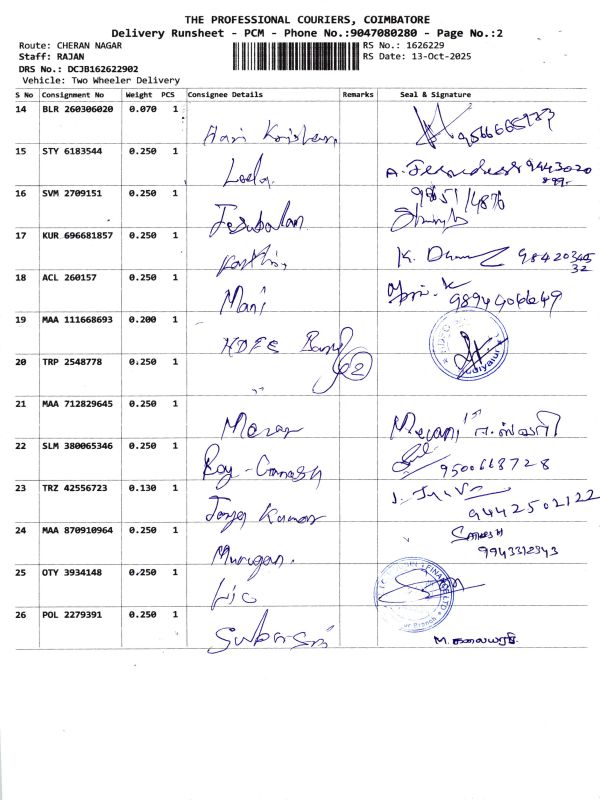 THE PROFESSIONAL COURIERS, COIMBATORE
Delivery Runsheet - PCM - Phone No.:9047080280 - Page No.:2
Route: CHERAN NAGAR
RS No.: 1626229
Staff: RAJAN
RS Date: 13-Oct-2025
DRS No.: DCJB162622902
Vehicle: Two Wheeler Delivery
S No Consignment No Weight PCS Consignee Details Remarks Seal & Signature
14 BLR 260306020 0.070 1 Hari Krishan
15 STY 6183544 0.250 1 Leela. A. 9443020
899
16 SVM 2709151 0.250 1 Jesubalan 98651 14876
17 KUR 696681857 0.250 1 Karthi, K. 98420345
32
18 ACL 260157 0.250 1 Mani 9894406649
19 MAA 111668693 0.200 1 HDFC Bank
20 TRP 2548778 0.250 1 2
21 MAA 712829645 0.250 1
22 SLM 380065346 0.250 1 Roy - Ganesh 9500668728
23 TRZ 42556723 0.130 1 Kumar 9442502122
24 MAA 870910964 0.250 1 Murugan. SATHEESH
9943312343
25 OTY 3934148 0.250 1 Lic
26 POL 2279391 0.250 1 M.